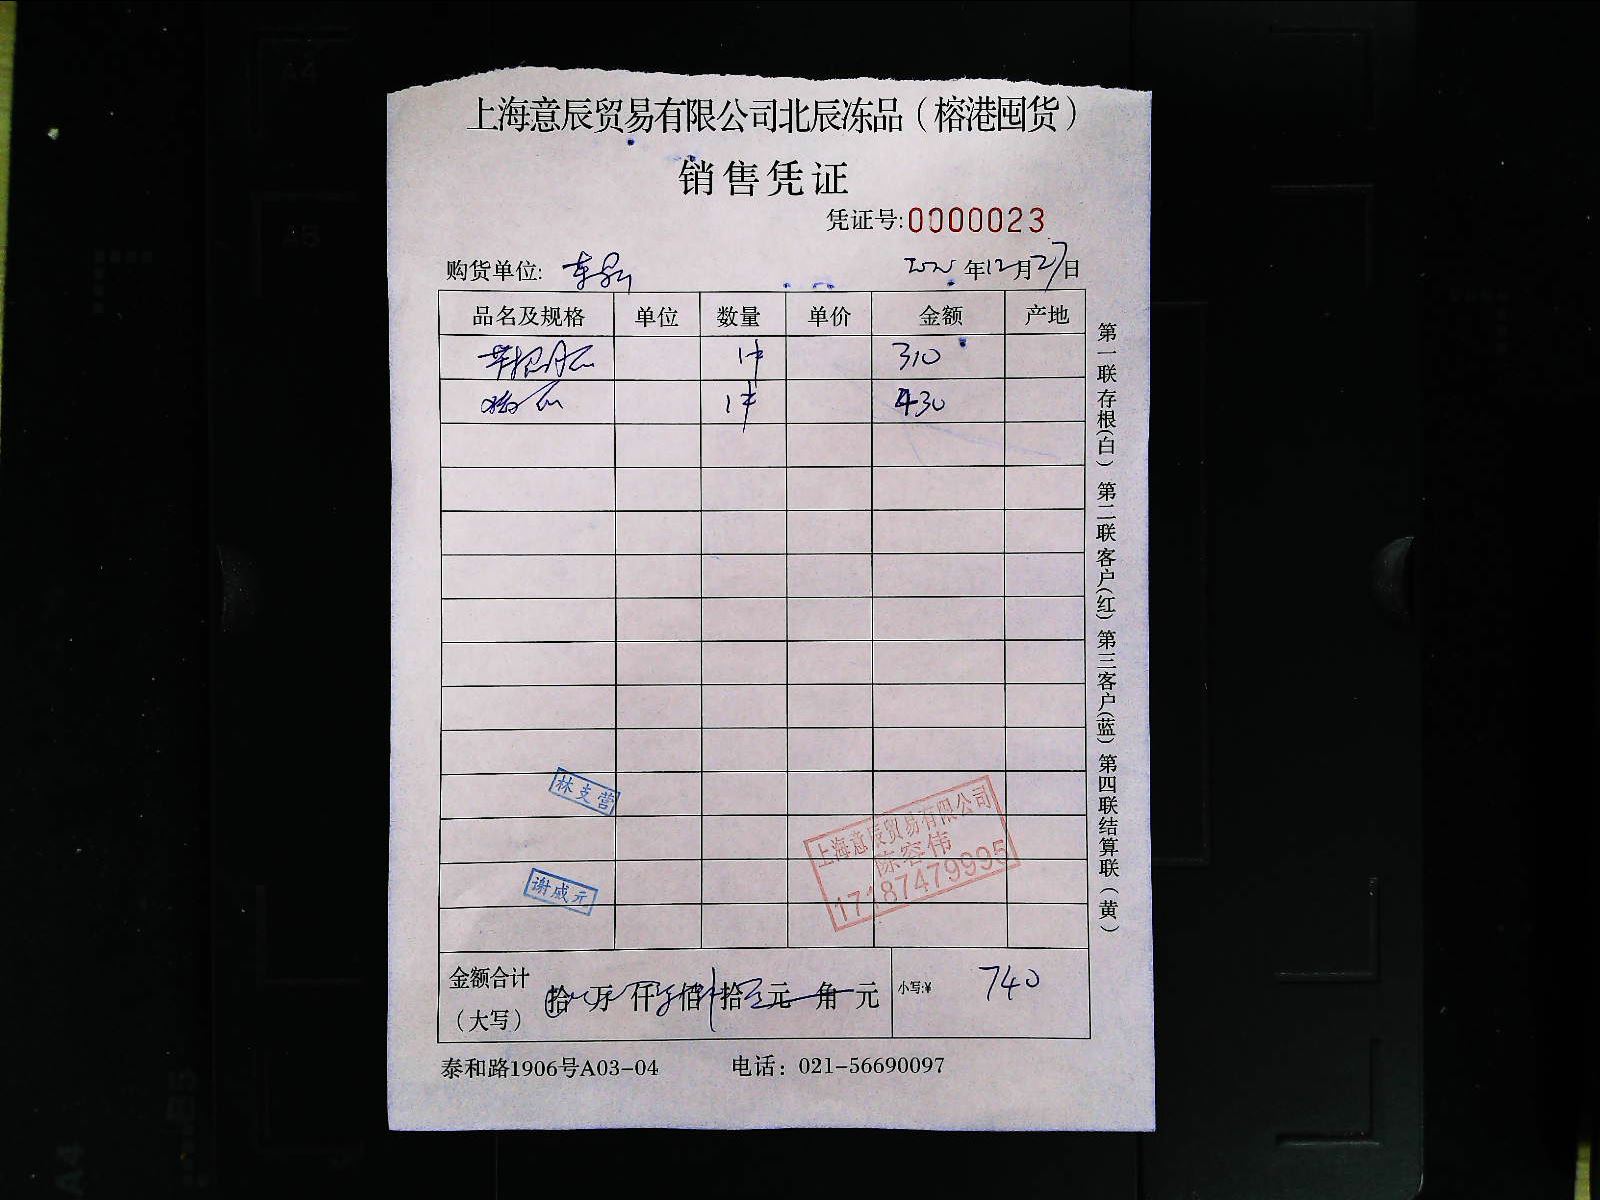 上海意辰贸易有限公司北辰冻品（榕港囤货）
销售凭证
凭证号:0000023
购货单位:
年12月27日
品名及规格 单位 数量 单价 金额 产地
1件 310
1件 430
林支营
上海意辰贸易有限公司
陈容伟
17187479995
谢成元
金额合计（大写） 拾 万 仟 佰 拾 元 角 元 小写:¥ 740
泰和路1906号A03-04 电话：021-56690097
第一联存根(白) 第二联客户(红) 第三客户(蓝) 第四联结算联（黄）